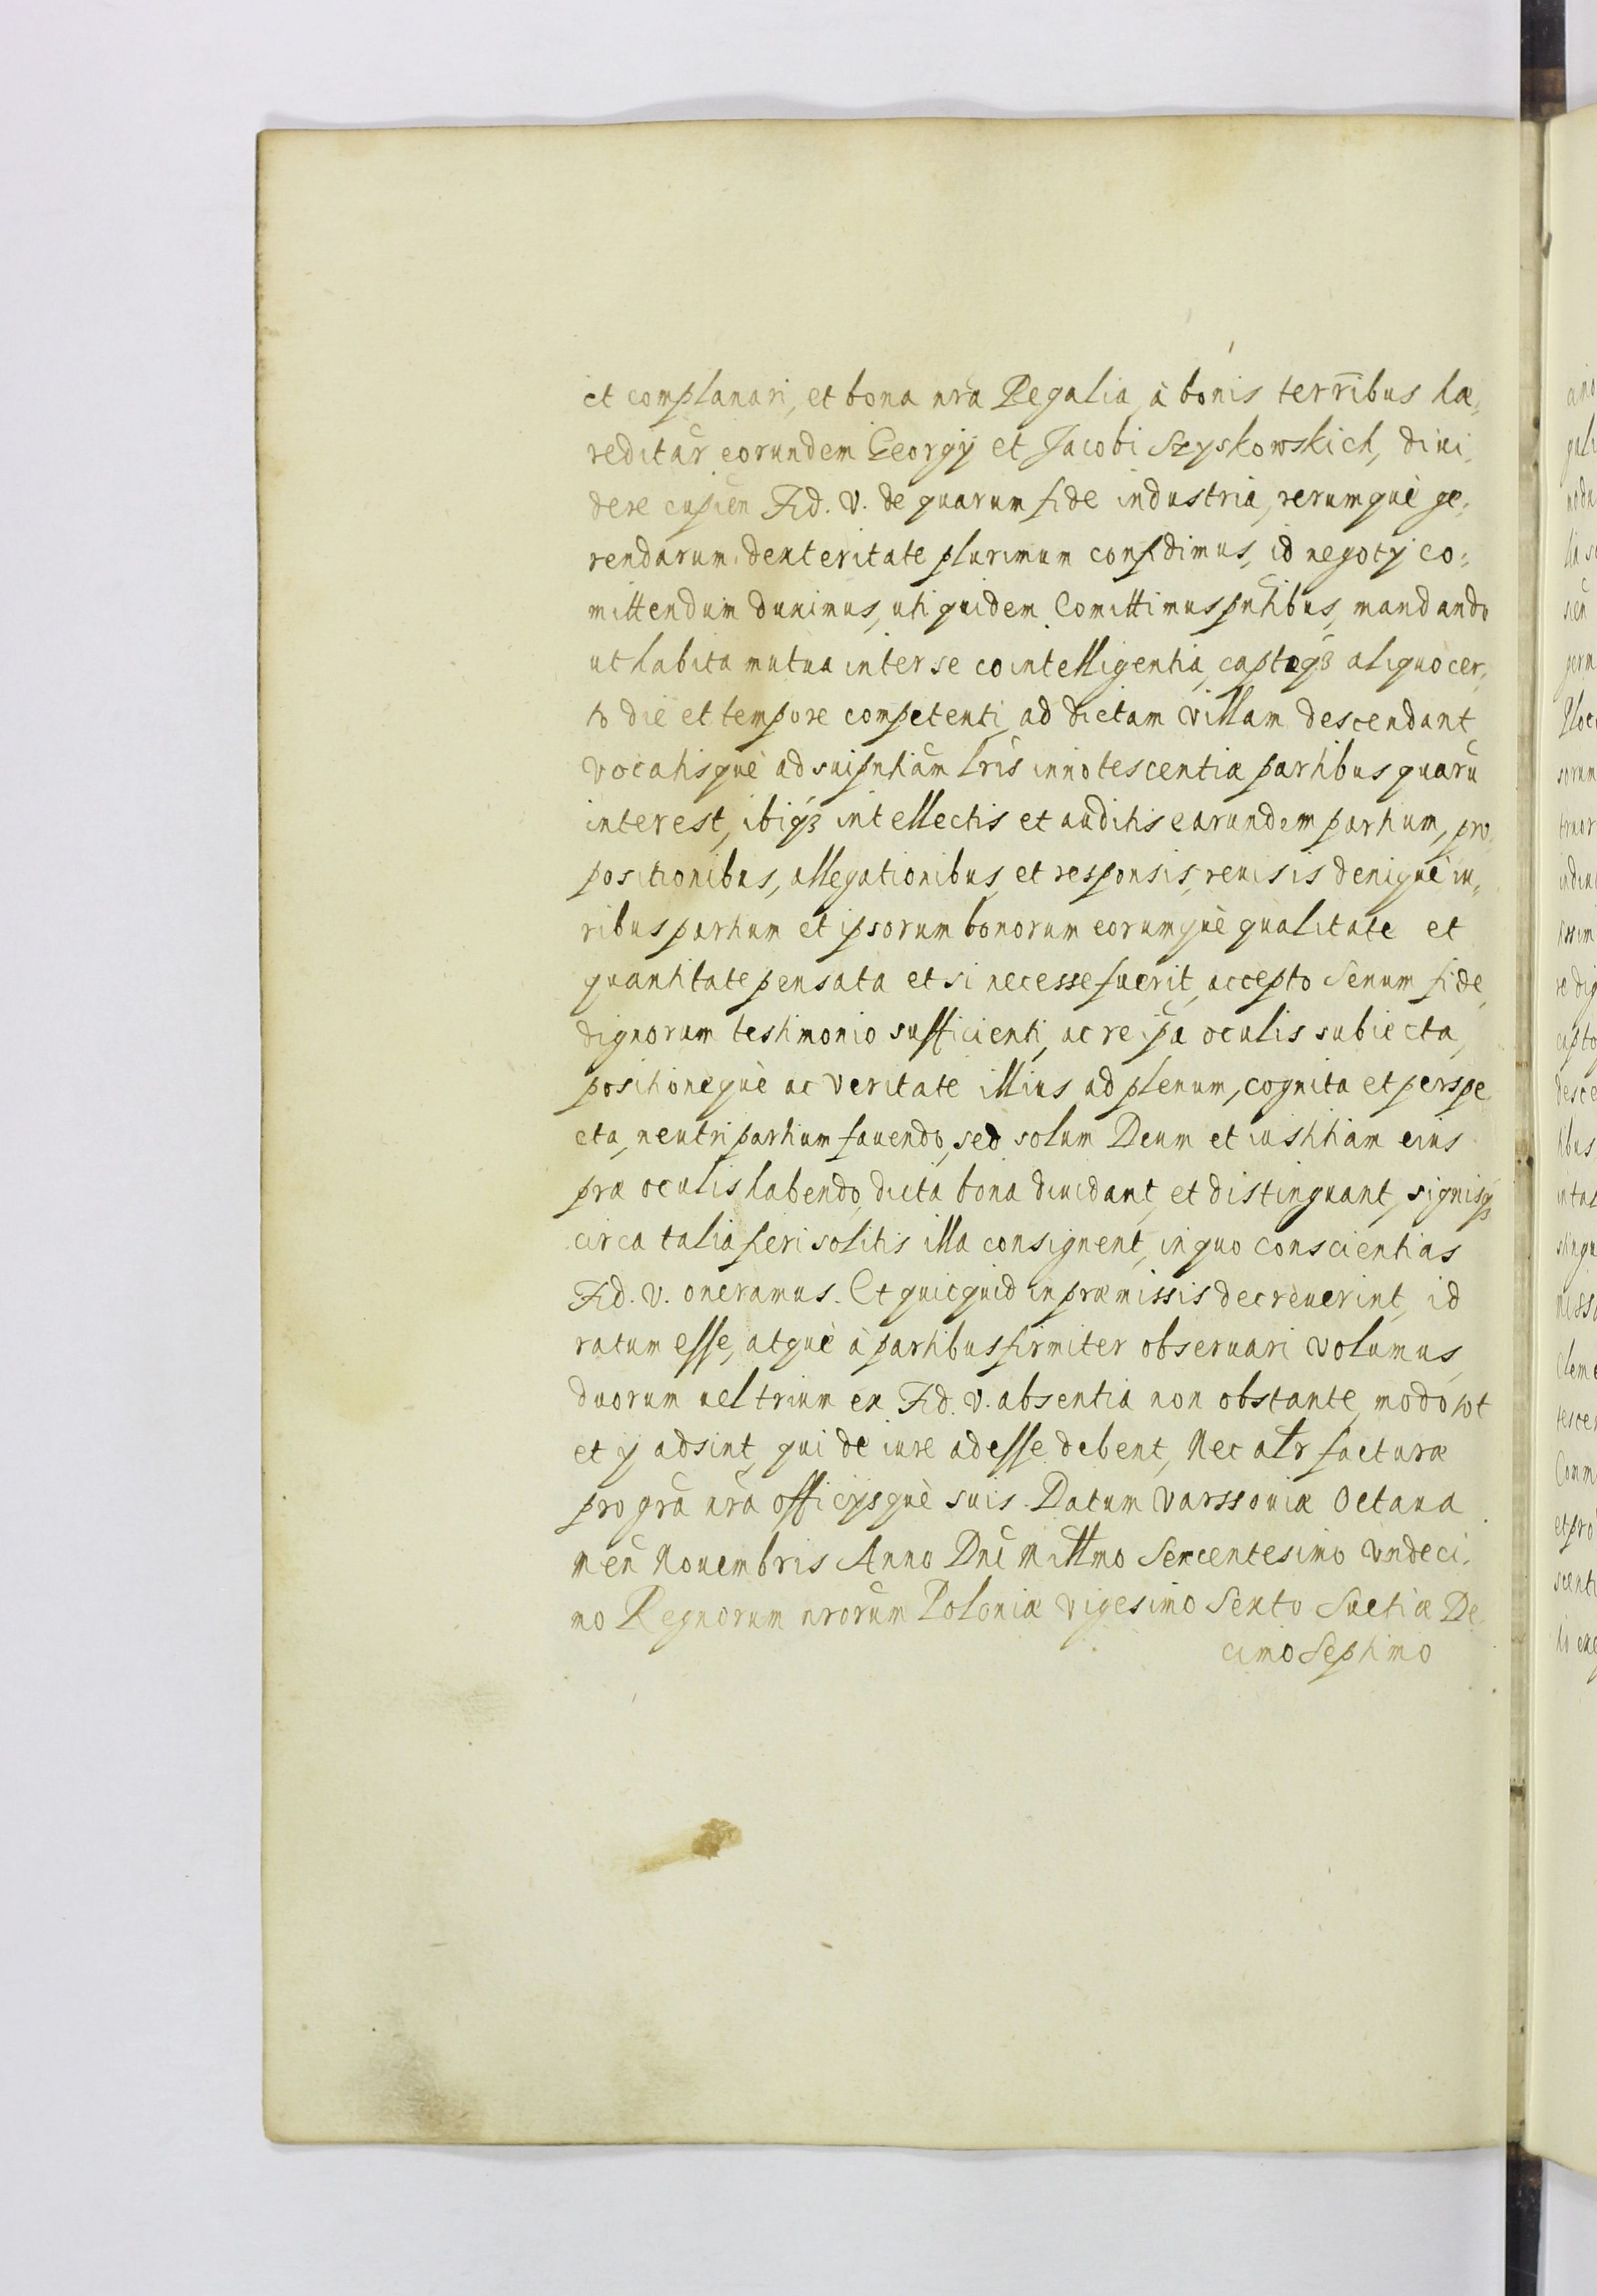 et complanari, et bona nrã Regalia, à bonis terrĩbus hæ„
reditar̃ eorundem Georgij et Jacobi Szyskowskich, diui„
dere cupien̄ Fid. V. de quarum fide industria, rerumquè ge„
rendarum dexteritate plurimum confidimus, id negotij co„
mittendum duximus, uti quidem Comittimus pn̄tibus, mandando
ut habita mutua inter se cointelligentia, captoq₃ aliquo cer„
to die et tempore competenti, ad dictam villam descendant
vocatisquè ad sui pn̄tiam lrĩs innotescentia partibus quarũ
interest, ibiq₃ intellectis et auditis earundem partium, pro„
positionibus, allegationibus, et responsis, reuisis deniquè iu„
ribus partium et ipsorum bonorum eorumquè qualitate et
quantitate pensata et si necesse fuerit, accepto Senum fide
dignorum testimonio sufficienti, ac re ip̃a oculis subiecta,
positionequè ac veritate illius ad plenum, cognita et perspe
cta, neutri partium fauendo, sed solum Deum et iustitiam eius
præ oculis habendo, dicta bona diuidant, et distinguant, signisq₃
circa talia fieri solitis illa consignent, in quo conscientias
Fid. V. oneramus. Et quicquid in præmissis decreuerint, id
ratum esse, atquè à partibus firmiter obseruari volumus,
duorum uel trium ex Fid. V. absentia non obstante, modo tot
et ij adsint, qui de iure adesse debent, Nec alr̃ facturæ
pro grã nrã officijsquè suis. Datum Varssouiæ Octaua
men̄ Nouembris Anno Dnĩ Millmo Sexcentesimo Vndeci„
mo Regnorum nrorũm Poloniæ Vigesimo Sexto Suetiæ De
cimo Septimo